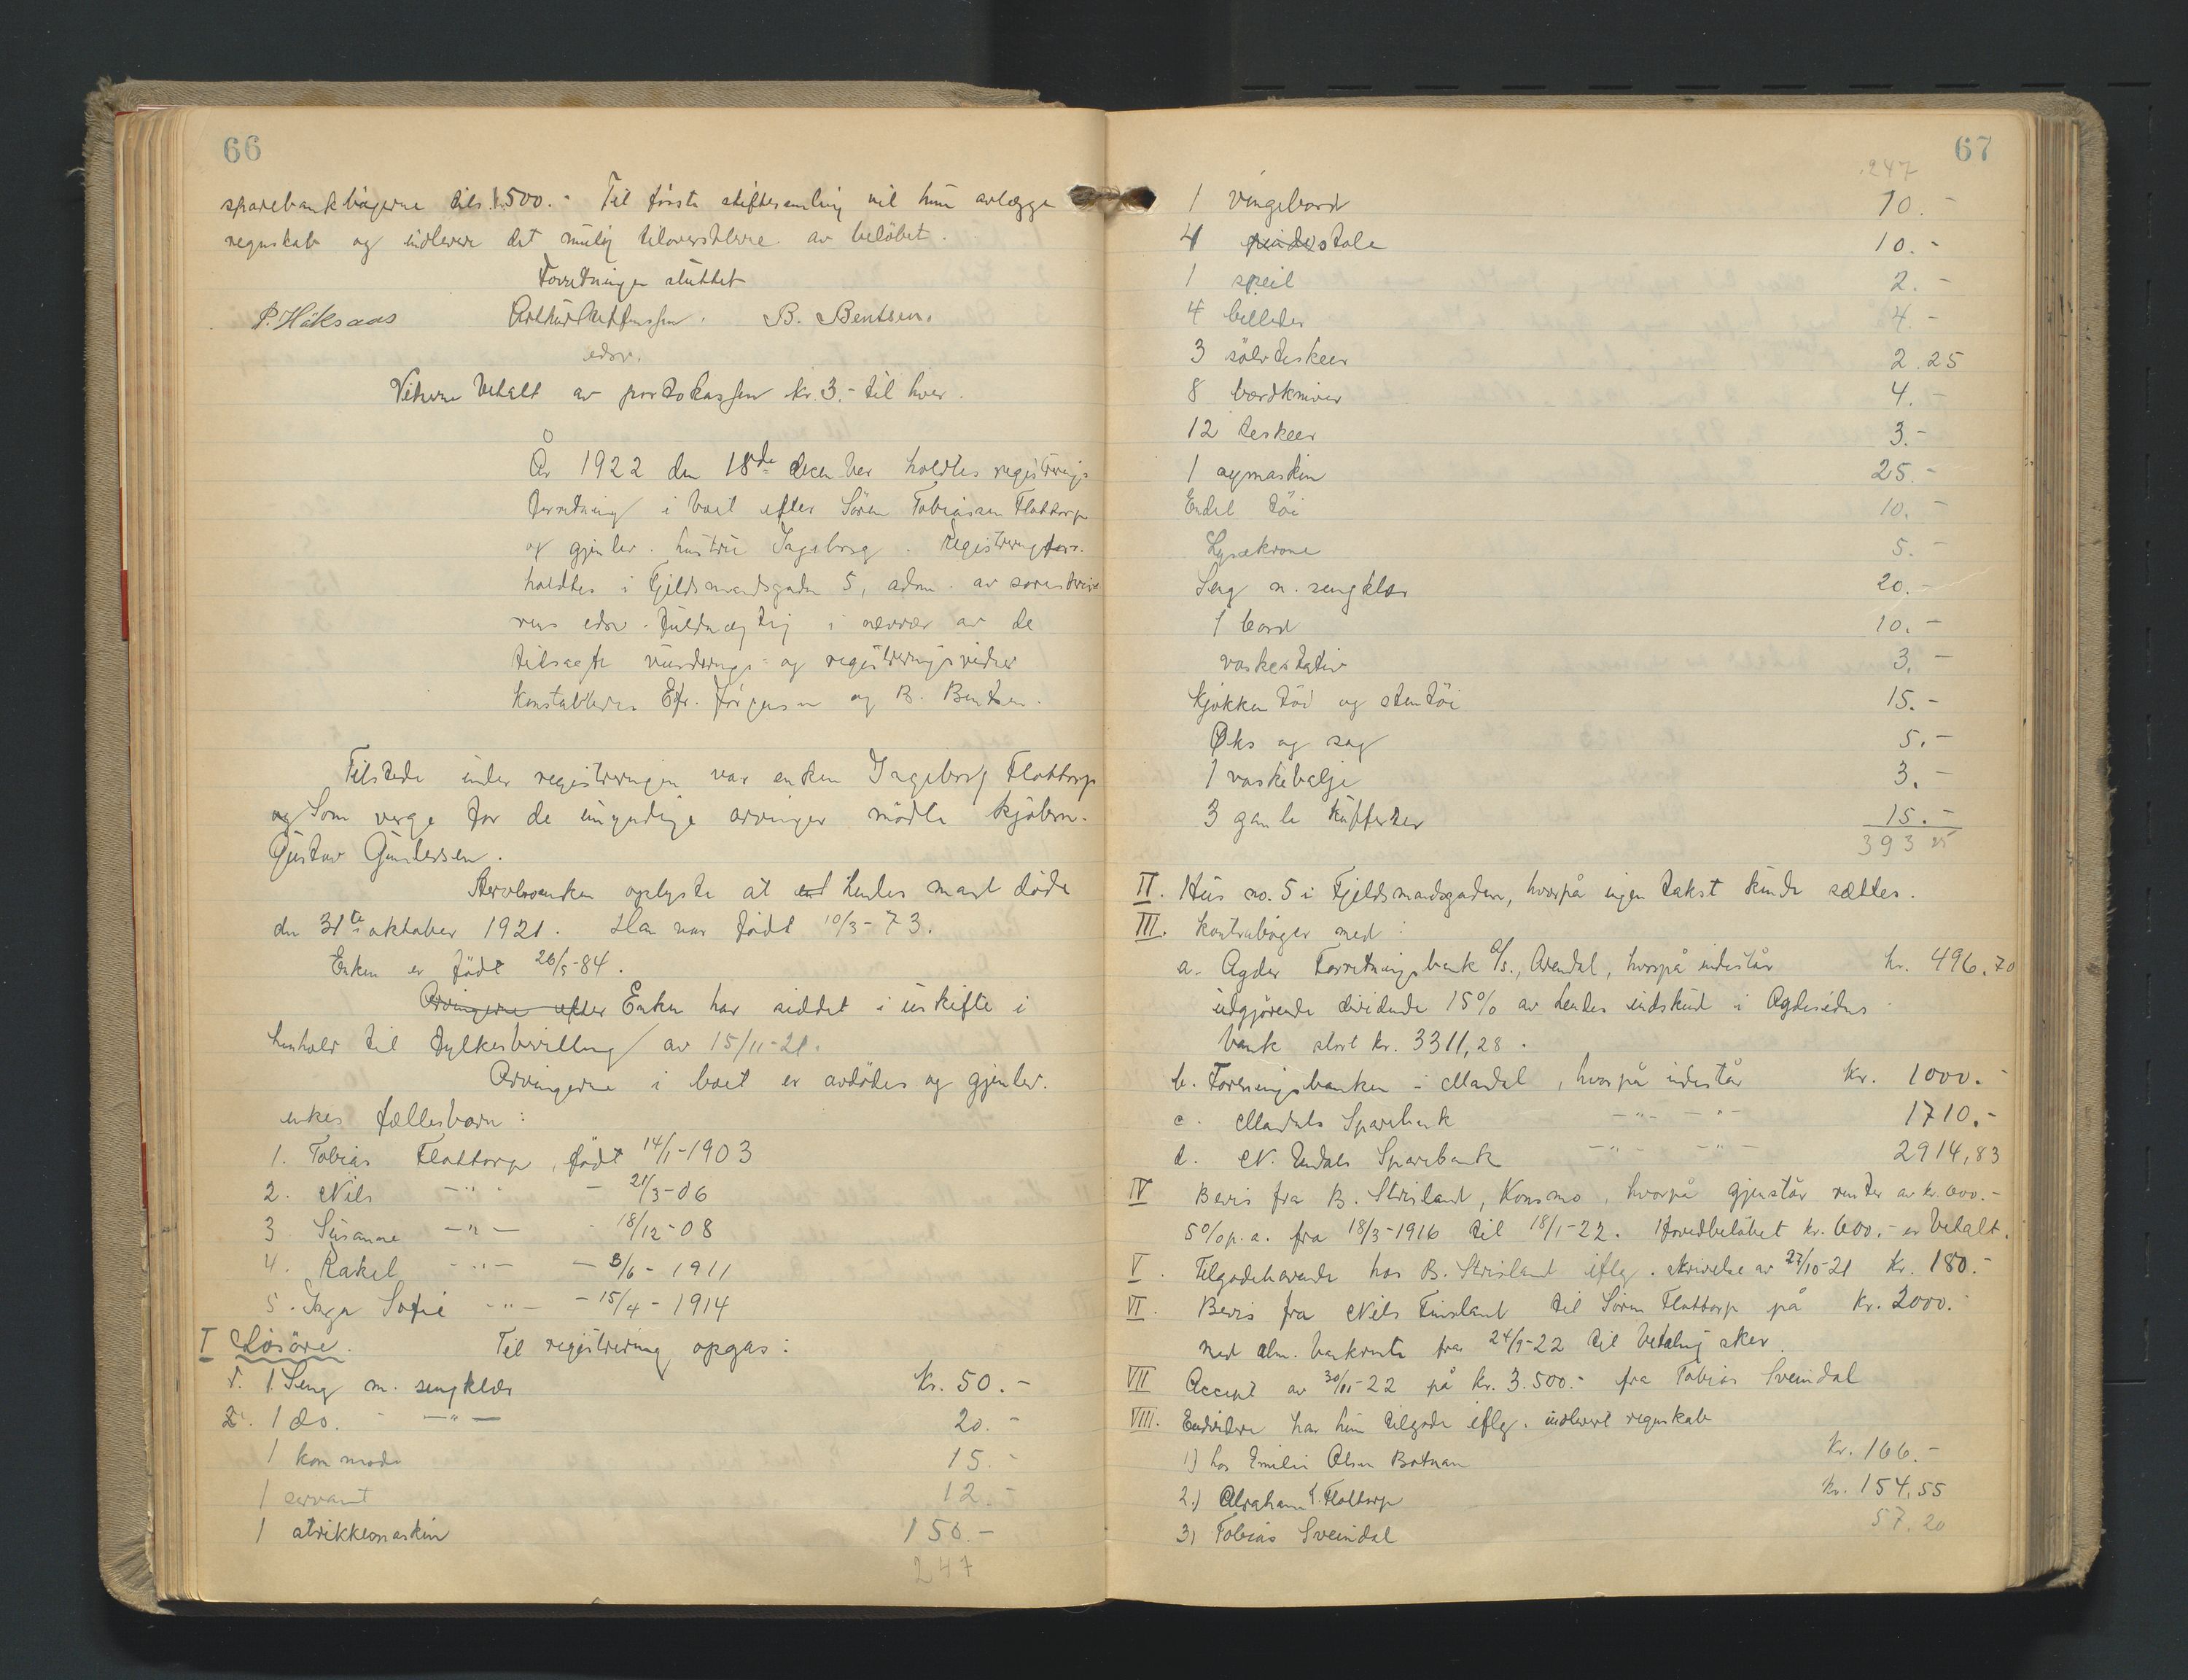 66
sparebankbøgerne tils. 1500.- Til første skiftesamling vil hun avlægge
regnskab og indlevere det mulig tiloversblevne av beløbet.
Forretningen sluttet
P. Håksaas B. Bentsen.
edsv.
Vitnerne betalt av portokassen kr. 3,- til hver.
År 1922 den 18de december holdtes registrerings
forretning i boet efter Sören Tobiassen Flottorp
og gjenlev. hustru Ingeborg. Registreringsforr.
holdtes i Fjeldsmandsgaden 5, adm. av sorenskrive
rens edsv. fuldmægtig i nærvær av de
tilsagte vurderings- og registreringsvidner
konstablerne Efr. Jörgensen og B. Bentsen.
Tilstede under registreringen var enken Ingeborg Flottorp
og Som verge for de umyndige arvinger mödte kjøbm.
Gustav Gundersen.
Stervboenken oplyste at hendes mand döde
den 31te oktober 1921. Han var födt 10/3-73.
Enken er födt 26/5-84.
Arvingerne efter Enken har siddet i uskifte i
henhold til fylkesbevilling av 15/11-21.
Arvingerne i boet er avdödes og gjenlev.
enkes fællesbarn:
1. Tobias Flottorp, födt 14/1-1903
2. Nils -"- - 21/3-06
3 Susanne -"- - 18/12-08
4. Rakel -"- - 3/6-1911
5. Inga Sofie -"- - 15/4-1914
I Lösöre. Til registrering opgas:
1. 1 Seng m. sengklær kr. 50.-
2. 1 do. -"- 20.-
1 kommode 15.-
1 servant 12.-
1 strikkemaskin 150.-
247
67
247
1 vingebord 10.-
4 pindestole 10.-
1 speil 2.-
4 billeder 4.-
3 sölvteskeer 2.25
8 bordkniver 4.-
12 teskeer 3.-
1 symaskin 25.-
Endel töi 10.-
Lysekrone 5.-
Seng m. sengklær 20.-
1 bord 10.-
vaskestativ 3.-
Kjøkkentöi og stentöi 15.-
Øks og sag 5.-
1 vaskebalje 3.-
3 gamle kufferter 15.-
393 25
II. Hus no. 5 i Fjeldsmandsgaden, hvorpå ingen takst kunde sættes.
III. Kontrabøger med:
a. Agder Forretningsbank A/s., Arendal, hvorpå indestår kr. 496.70
udgjörende dividende 15% av hendes indskud i Agdesidens
bank stort kr. 3311,28.
b. Foreningsbanken i Mandal, hvorpå indestår kr. 1000.-
c. Mandals Sparebank -"- -"- 1710.-
d. N. Undals Sparebank -"- -"- 2914,83
IV Bevis fra B. Strisland, Konsmo, hvorpå gjenstår renter av kr. 600.-
5% p.a. fra 18/3-1916 til 18/1-22. Hovedbelöbet kr. 600.- er betalt.
V. Tilgodehavende hos B. Strisland iflg. skrivelse av 27/10-21 kr. 180.-
VI. Bevis fra Nils Finsland til Sören Flottorp på kr. 2000.-
med alm. bankrente fra 24/9-22 til betaling sker.
VII Accept av 30/11-22 på kr. 3.500.- fra Tobias Sveindal
VIII. Endvidere har hun tilgode iflg. indlevert regnskab
1) hos Emilie Olsen Botnan kr. 166.-
2.) Abraham T. Flottorp kr. 154,55
3) Tobias Sveindal 57.20